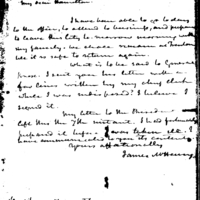 My dear Hamilton.
I have been able to go to day
to the office, to attend to business, and propose
to leave this city to morrow morning with
my family. We shall remain at Trenton
till it is safe to return again.
What is to be said to Governor
I sent you his letter with a
few lines written by my
while I was indisposed? I believe I
signed it.
My letter to the President
left this the 7th instant. I had
prepared it before I was taken ill. I
have communicated to you its contents.
Yours affectionately
James McHenry